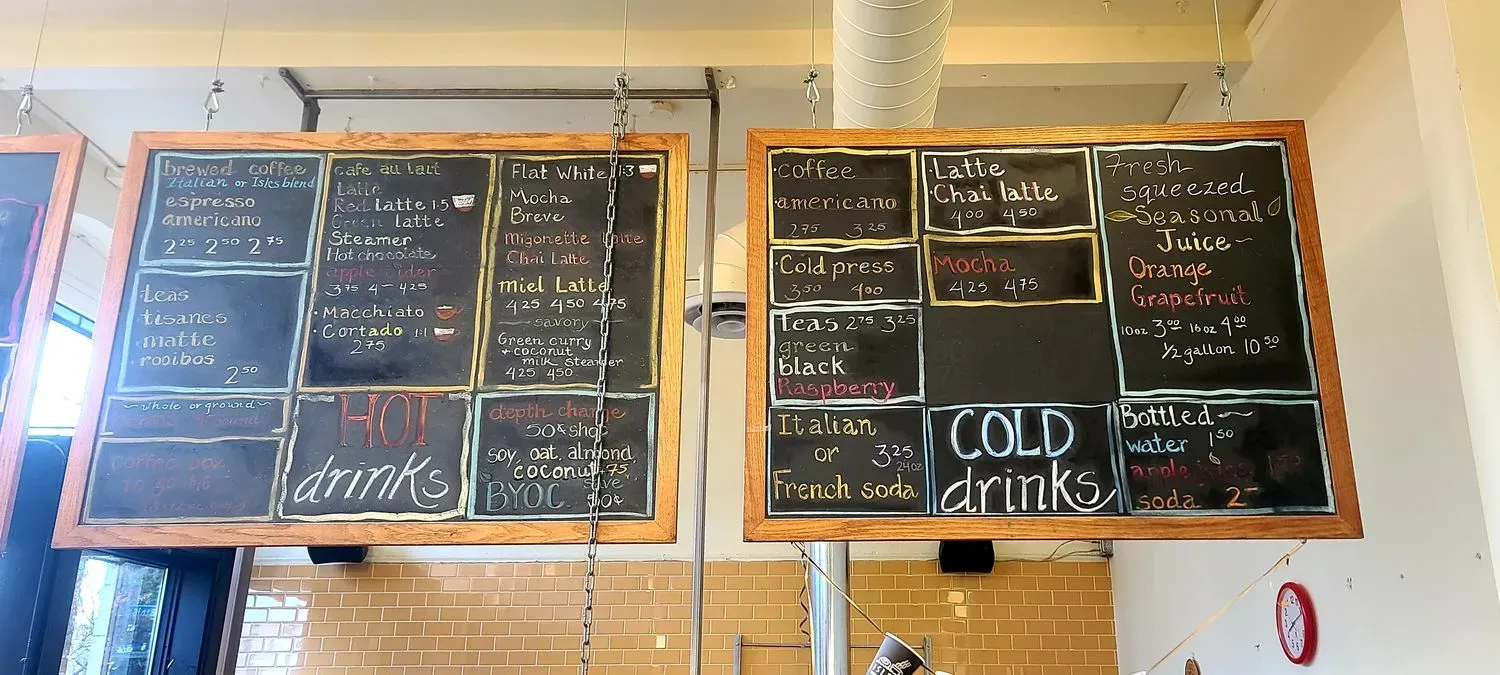 brewed coffee
Italian or Isles blend
espresso
americano
2 25 2 50 2 75
teas
tisanes
matte
rooibos
2 50
whole or ground
coffee box
to go
cafe au lait
Latte
Red latte 1:5
Green latte
Steamer
Hot chocolate
apple cider
3 75 4 - 4 25
Macchiato
Cortado 1:1
2 75
HOT
drinks
Flat White 1:3
Mocha
Breve
Migonette latte
Chai Latte
miel Latte
4 25 4 50 4 75
savory
Green curry
+ coconut
milk steamer
4 25 4 50
depth charge
50¢ shot
soy, oat, almond,
coconut .75
BYOC save
50¢
coffee
americano
2 75 3 25
Cold press
3 50 4 00
Teas 2 75 3 25
green
black
Raspberry
Italian
or 3 25
24oz
French soda
Latte
Chai latte
4 00 4 50
Mocha
4 25 4 75
COLD
drinks
Fresh
squeezed
Seasonal
Juice ~
Orange
Grapefruit
10oz 3 00 16oz 4 00
1/2 gallon 10 50
Bottled ~
water 1 50
apple juice 1 50
soda 2 -